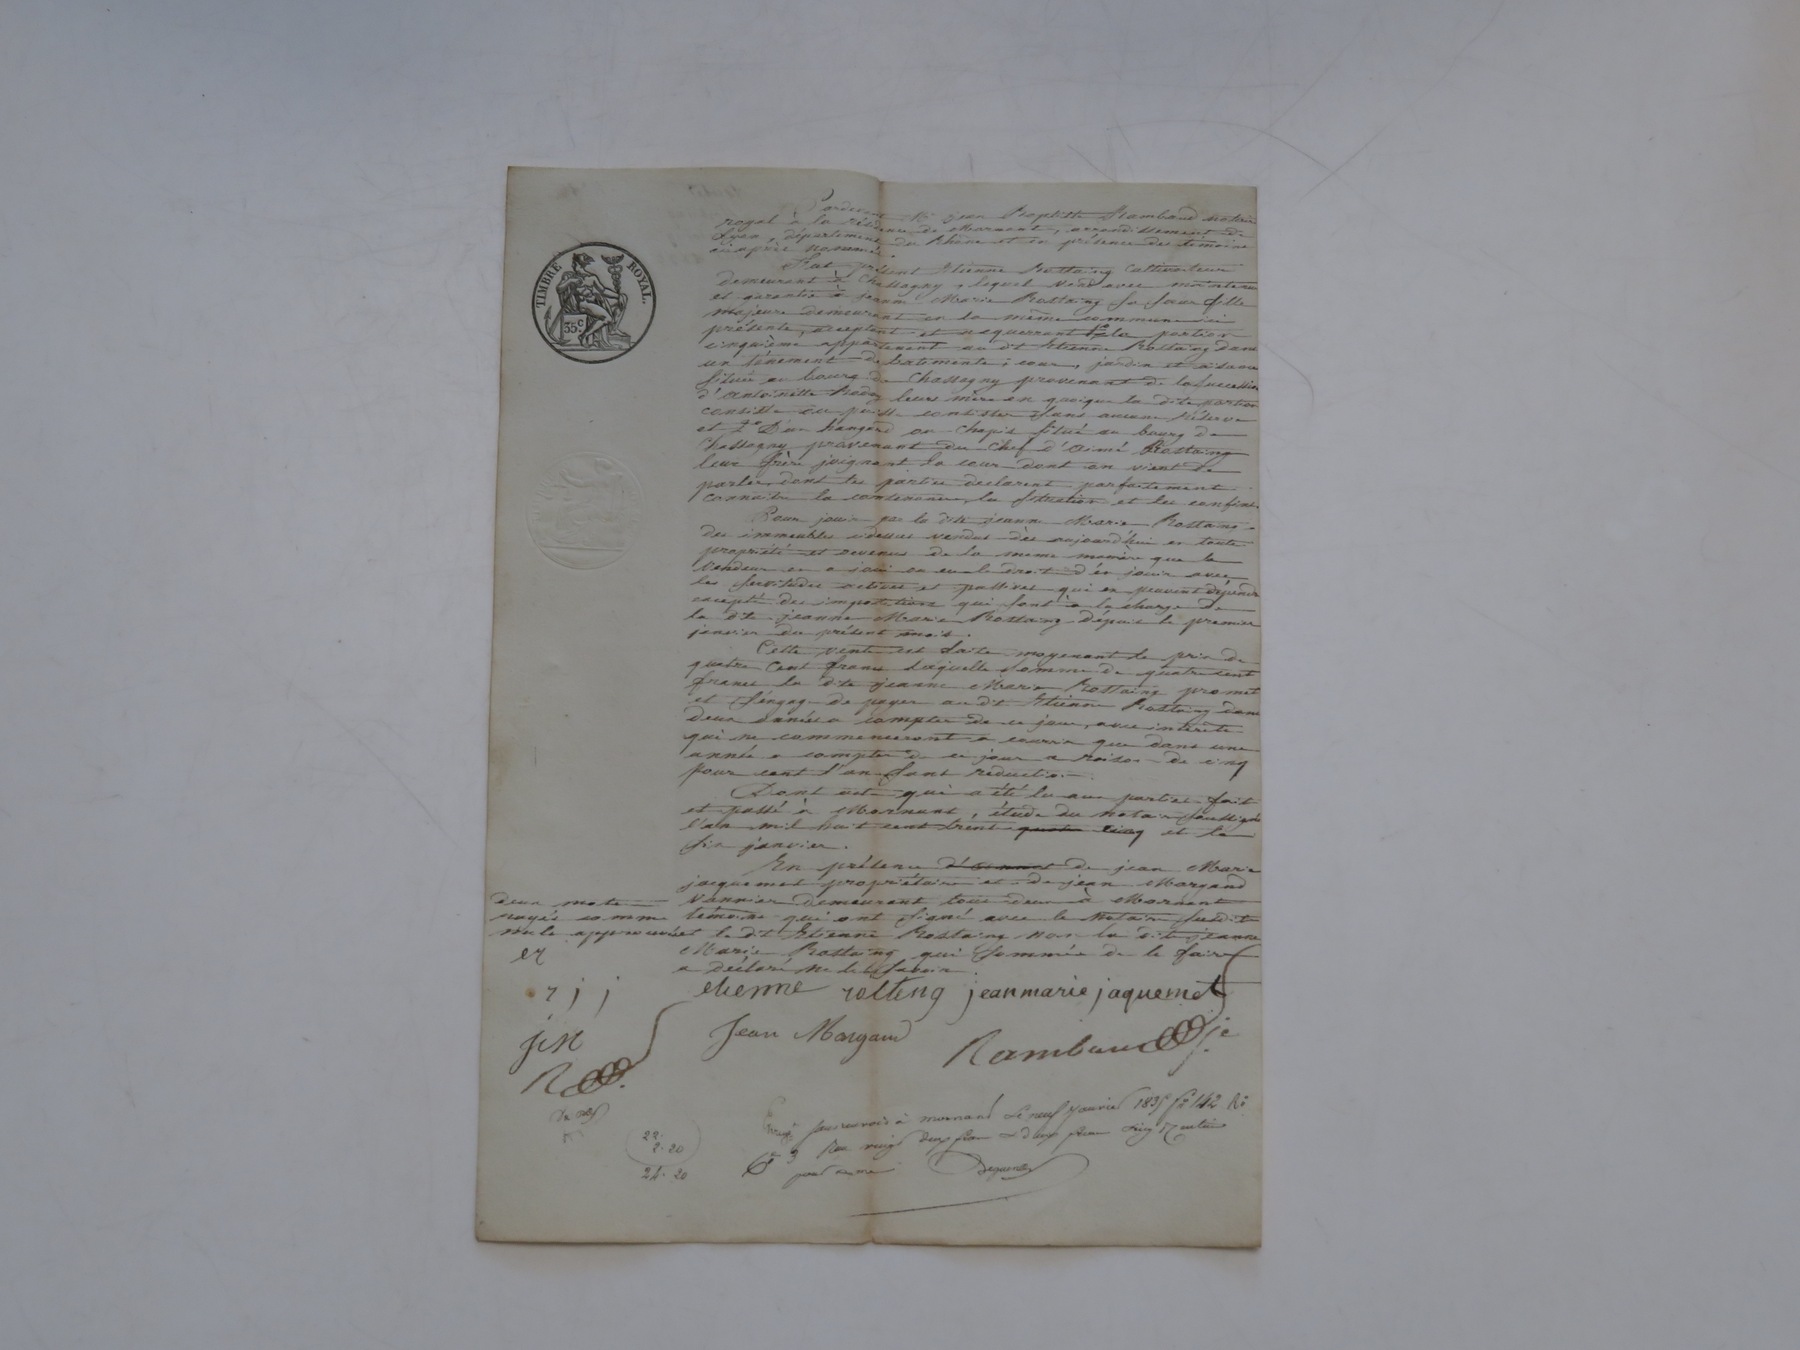 TIMBRE ROYAL.
35 c
Pardevant Me jean Baptiste Rambaud notaire
royal à la résidence de Mornant, arrondissement de
Lyon, département du Rhône et en présence des temoins
ciaprès nommés.
Fut présent Etienne Rostaing Cultivateur
demeurant à Chassagny, lequel vend avec maintenue
et garantie à jeanne Marie Rostaing sa sœur fille
majeure demeurant en la même commune ici
présente, acceptant et requerrant 1° la portion
cinquième appartenant au dit Etienne Rostaing dans
un ténement de batiments, cour, jardin et aisances
situé au bourg de Chassagny provenant de la succession
d'antoinette leurs mère en quoique la dite portion
consiste ou puisse consister sans aucune réserve
et 2° D'un hangard ou chapit situé au bourg de
Chassagny provenant du chef d'aimé Rostaing
leur frère joignant la cour dont on vient de
parler, dont les parties declarent parfaitement
connaitre la contenance, la situation et les confins.
Pour jouir par la dite jeanne Marie Rostaing
des immeubles cidessus vendus dès aujourd'hui en toute
propriété et revenus de la meme manière que le
vendeur en a joui ou eu le droit d'en jouir avec
les servitudes actives et passives qui en peuvent dépendre
excepté des impositions qui sont à la charge de
la dite jeanne Marie Rostaing dépuis le premier
janvier du présent mois.
Cette vente est faite moyenant le prix de
quatre cent francs laquelle somme de quatre cent
francs la dite jeanne Marie Rostaing promet
et s'engage de payer au dit Etienne Rostaing dans
deux années a compter de ce jour, avec intérêts
qui ne commenceront a courrir que dans une
année a compter de ce jour a raison de cinq
pour cent l'an sans réduction.
Dont acte qui a été lu aux parties fait
et passé à Mornant, étude du notaire soussigné
l'an mil huit cent trente quatre cinq et le
six janvier.
En présence de jean Marie
jacquemet propriétaire et de jean Margand
Vannier demeurant tous deux à Mornant
témoins qui ont signé avec le notaire susdit
et le dit Etienne Rostaing non la dite jeanne
Marie Rostaing qui sommée de le faire
a déclaré ne le savoir.
deux mots
rayés comme
nuls approuvés
er
jjj
jM
R
etienne rosteng jeanmarie jaquemet
Jean Margand
Rambaud
22.
2. 20
24. 20
à mornant le neuf janvier 1835 fo 142 Ro
Ce 3 Reçu vingt deux francs